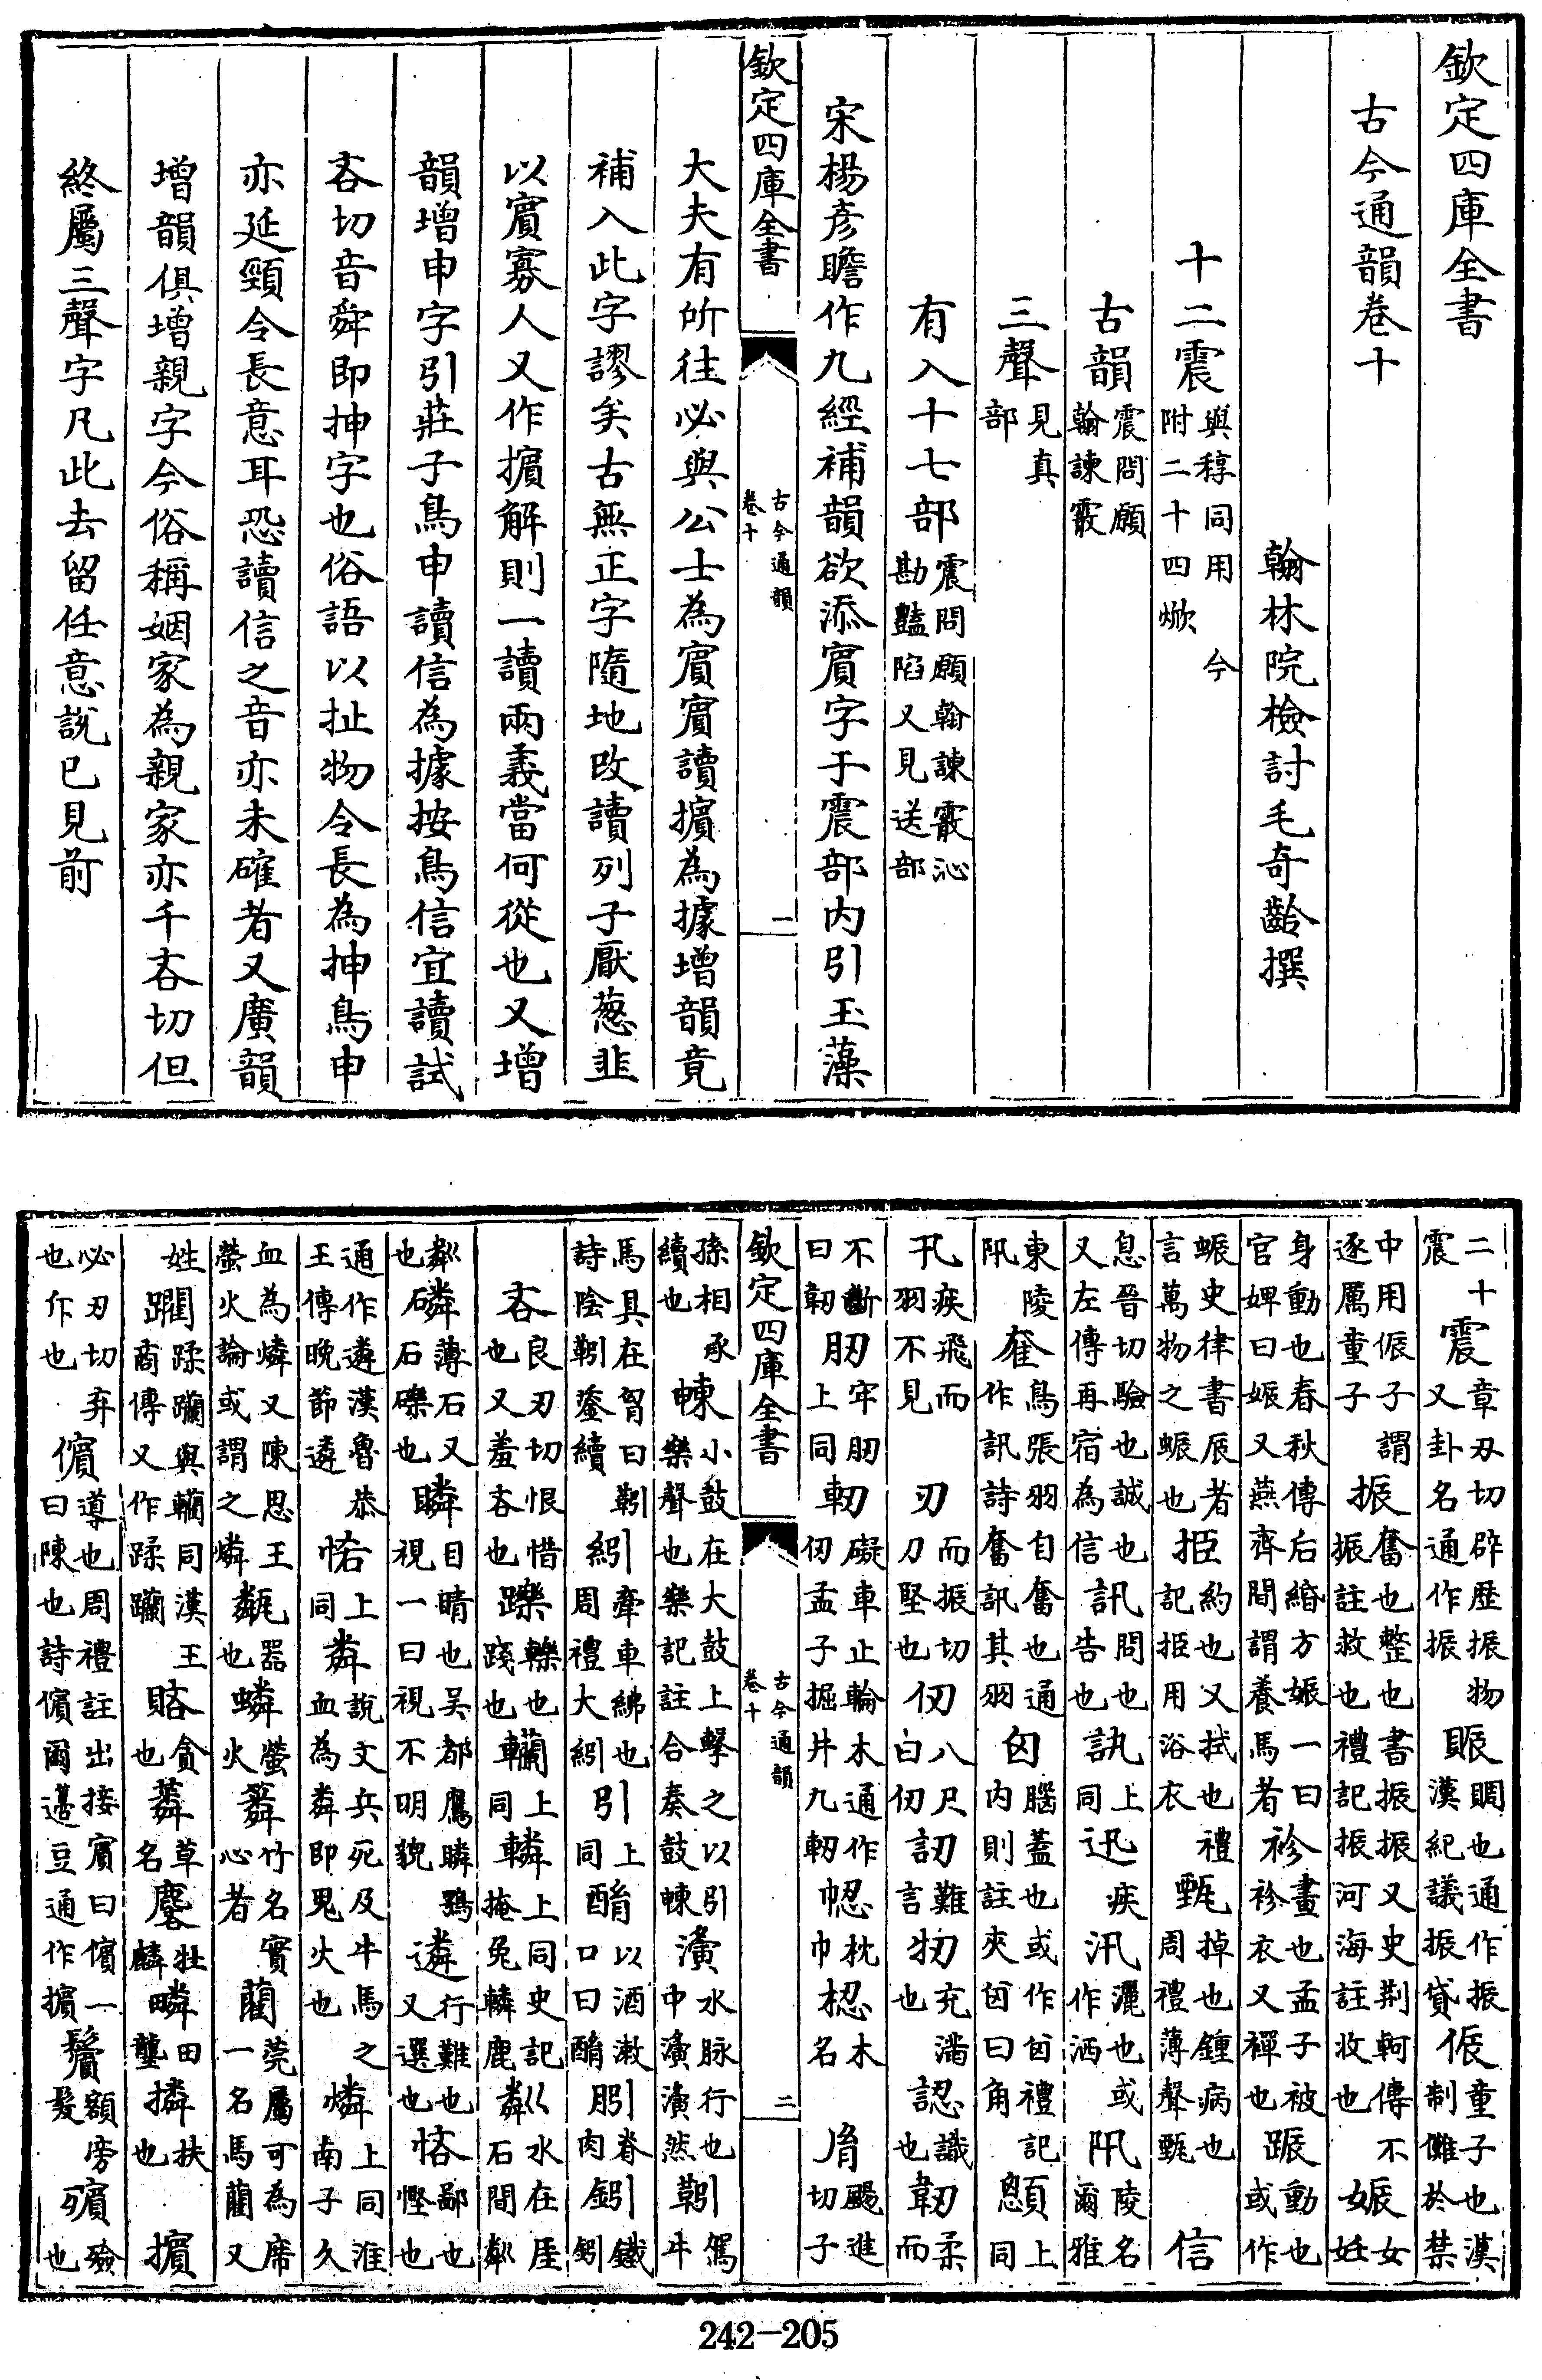 欽定四庫全書
古今通韻卷十
翰林院檢討毛奇齡撰
十二震與稕同用今附二十四焮
古韻震問願翰諫霰
三聲見真部
有入十七部震問願翰諫霰沁勘豔陷又見送部
宋楊彥瞻作九經補韻欲添賓字于震部内引玉藻
欽定四庫全書
古今通韻
卷十
一
大夫有所往必與公士為賓賓讀擯為據增韻竟
補入此字謬矣古無正字隨地改讀列子厭葱韭
以賓寡人又作擯解則一讀兩義當何從也又增
韻增申字引莊子鳥申讀信為據按鳥信宜讀試
吝切音舜即抻字也俗語以扯物令長為抻鳥申
亦延頸令長意耳恐讀信之音亦未確者又廣韻
增韻俱增親字今俗稱姻家為親家亦千吝切但
終屬三聲字凡此去留任意說已見前
二十震章刃切辟歴振物又卦名通作振賑賙也通作振漢紀議振貸侲童子也漢制儺於禁
中用侲子謂逐厲童子振奮也整也書振振又史荆軻傳不振註救也禮記振河海註收也娠女妊
身動也春秋傳后緡方娠一曰官婢曰娠又燕齊間謂養馬者袗畫也孟子被袗衣又禪也蹍動也或作
蜄史律書辰者言萬物之蜄也挋約也又拭也禮記挋用浴衣甄掉也鍾病也周禮薄聲甄信
息晉切驗也誠也又左傳再宿為信訊問也告也訙上同迅疾汛灑也或作洒阠陵名爾雅
東陵阠奞鳥張羽自奮也通作訊詩奮訊其羽囟腦蓋也或作囟禮記内則註夾囟曰角顖上同
卂疾飛而羽不見刃而振切刀堅也仞八尺曰仞訒難言牣充滿也認識也韌柔而
不斷曰韌肕牢肕上同軔礙車止輪木通作仞孟子掘井九軔㠴枕巾梕木名胤颺進切子
孫相承續也朄小鼓在大鼓上擊之以引樂聲也樂記註合奏鼓朄濥水脉行也中濥濥然靷駕牛
馬具在胷曰靷詩陰靷鋈續紖牽車紼也周禮大紖引上同酳以酒漱口曰酳䏖脊肉鈏鐵鈏
欽定四庫全書
古今通韻
卷十
二
吝良刃切恨惜也又羞吝也躒轢也踐也轥上同轔上同史記掩兔轔鹿粼水在厓石間粼
粼磷薄石又也石磷也瞵目睛也吳都鷹瞵鶚視一曰視不明貌遴行難也又選也悋鄙也慳也
通作遴漢魯恭王傳晚節遴恡上同粦說文兵死及牛馬之血為粦粦即鬼火也燐上同淮南子久
血為燐又陳思王螢火論或謂之燐甐器也蟒螢火䉮竹名實心者藺莞屬可為席一名馬藺又
姓躪蹂躪與轥同漢王商傳又作蹂躪賂貪也蓾草名麐牡麟疄田壟撛扶也擯
必刃切弃也斥也儐導也周禮註出接賓曰儐一曰陳也詩儐爾籩豆通作擯鬢額旁髮殯殮也
242-205